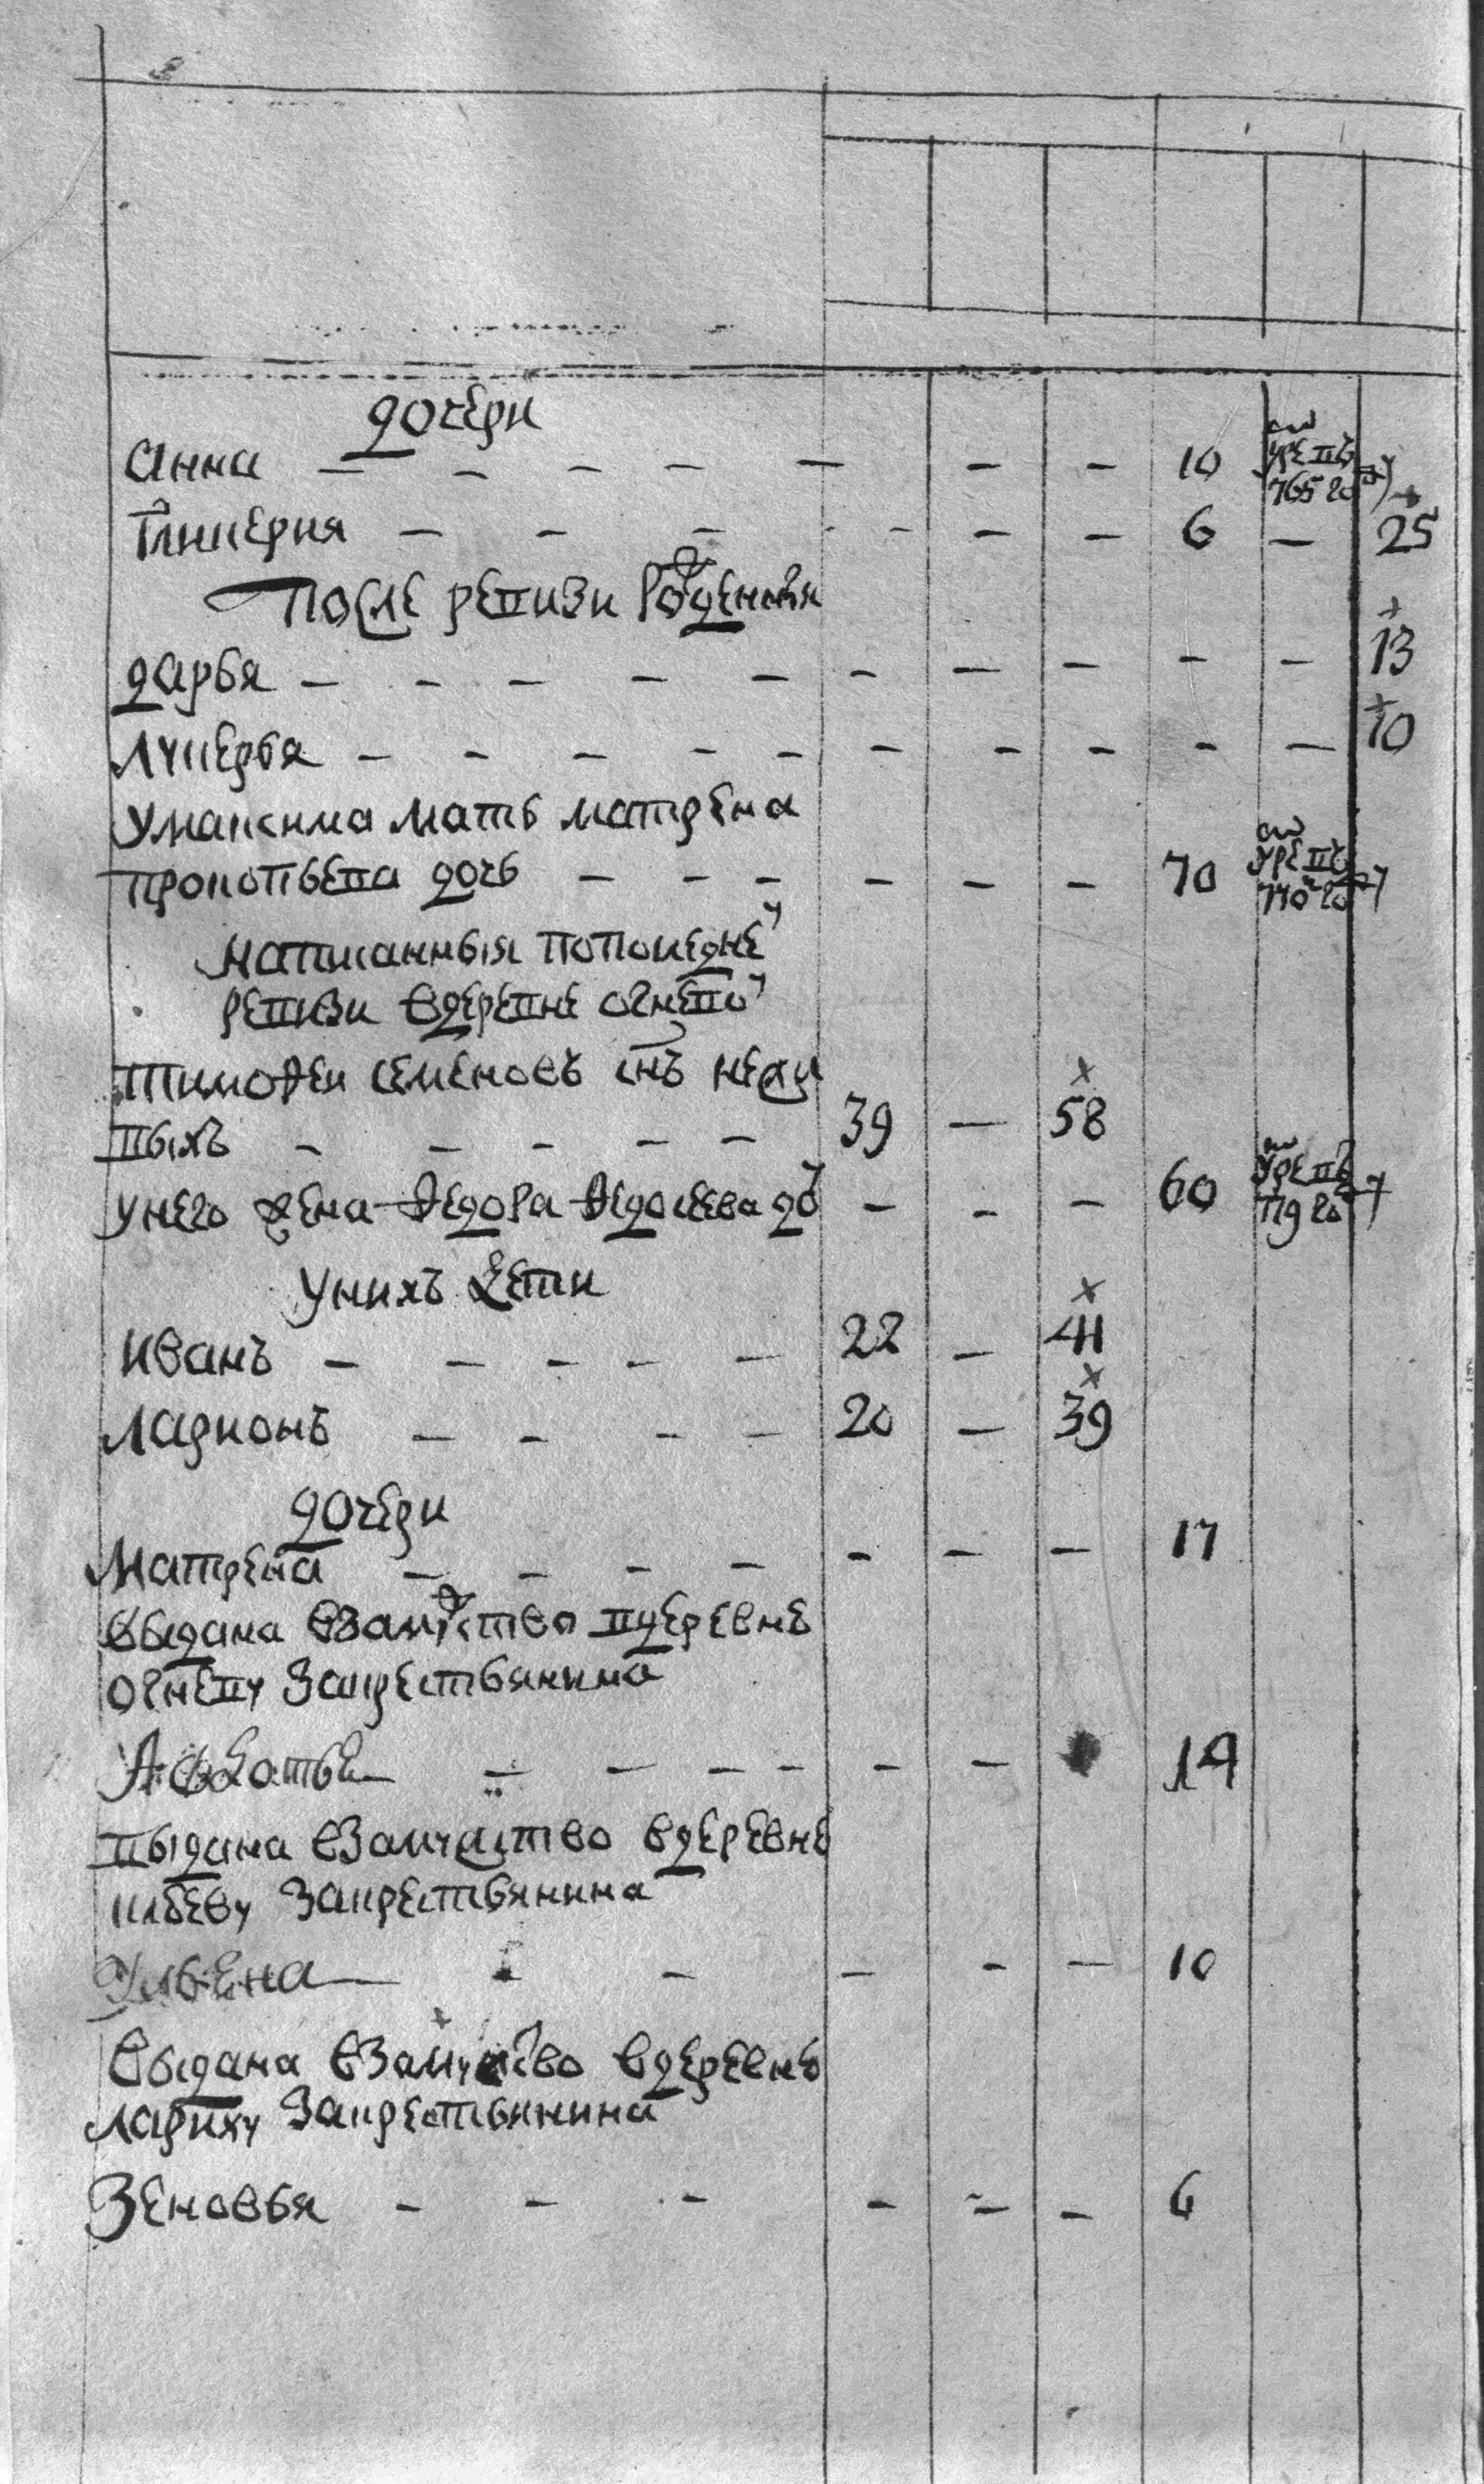 дочери
Анна — — — — — — — 10 умре въ 765 году
Гликерия — — — — — — — 6 — 25
После ревизи рожденныя
дарья — — — — — — — — — — 13
Лукерья — — — — — — — — — — 10
Умаксима мать матрена
прокопьева дочь — — — — — — 70 умре въ 770 году
написанныя попоследне
ревизи вдеревне огнево
Тимофеи семеновъ снъ
выхъ — — — — — 39 — 58
Унего жена Федора Федосеева до — — — 60 умре въ году
Унихъ дети
Иванъ — — — — — 22 — 41
Ларионъ — — — — 20 — 39
дочери
Матрена — — — — — — — 17
выдана взамужство вдеревне
огневу закрестьянина
Авдотья — — — — — — 14
выдана взамуство вдеревне
закрестьянина
Ульяна — — — — — 10
Выдана взамуство вдеревне
лариху закрестьянина
Зеновья — — — — — — 6